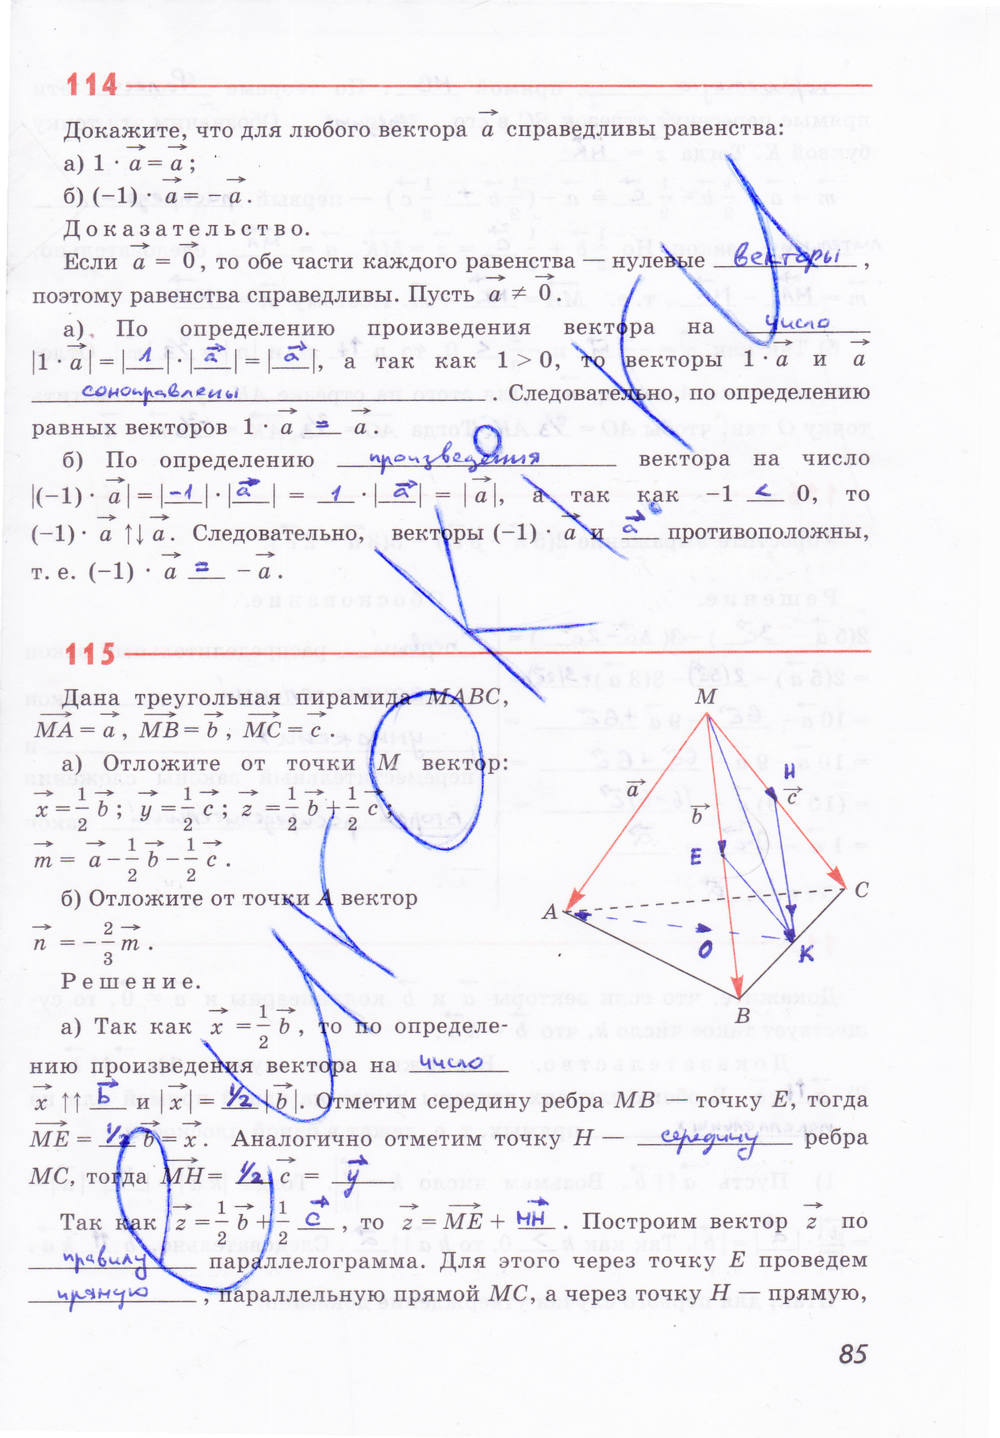 114
Докажите, что для любого вектора a⃗ справедливы равенства:
а) 1 · a⃗ = a⃗ ;
б) (-1) · a⃗ = - a⃗ .
Доказательство.
Если a⃗ = 0⃗ , то обе части каждого равенства — нулевые векторы ,
поэтому равенства справедливы. Пусть a⃗ ≠ 0⃗ .
а) По определению произведения вектора на число
|1 · a⃗| = |1| · |a⃗| = |a⃗|, а так как 1 > 0, то векторы 1 · a⃗ и a⃗
сонаправлены . Следовательно, по определению
равных векторов 1 · a⃗ = a⃗ .
б) По определению произведения вектора на число
|(-1) · a⃗| = |-1| · |a⃗| = 1 · |a⃗| = |a⃗|, а так как -1 < 0, то
(-1) · a⃗ ↑↓ a⃗ . Следовательно, векторы (-1) · a⃗ и a⃗ противоположны,
т. е. (-1) · a⃗ = - a⃗ .
115
Дана треугольная пирамида MABC,
MA⃗ = a⃗ , MB⃗ = b⃗ , MC⃗ = c⃗ .
а) Отложите от точки M вектор:
x⃗ = 1/2 b⃗ ; y⃗ = 1/2 c⃗ ; z⃗ = 1/2 b⃗ + 1/2 c⃗ ;
m⃗ = a⃗ - 1/2 b⃗ - 1/2 c⃗ .
б) Отложите от точки A вектор
n⃗ = - 2/3 m⃗ .
M
a⃗
b⃗
H
c⃗
E
A
C
O
K
B
Решение.
а) Так как x⃗ = 1/2 b⃗ , то по определе-
нию произведения вектора на число
x⃗ ↑↑ b⃗ и |x⃗| = 1/2 |b⃗|. Отметим середину ребра MB — точку E, тогда
ME⃗ = 1/2 b⃗ = x⃗ . Аналогично отметим точку H — середину ребра
MC, тогда MH⃗ = 1/2 c⃗ = y⃗
Так как z⃗ = 1/2 b⃗ + 1/2 c⃗ , то z⃗ = ME⃗ + MH⃗ . Построим вектор z⃗ по
правилу параллелограмма. Для этого через точку E проведем
прямую , параллельную прямой MC, а через точку H — прямую,
85